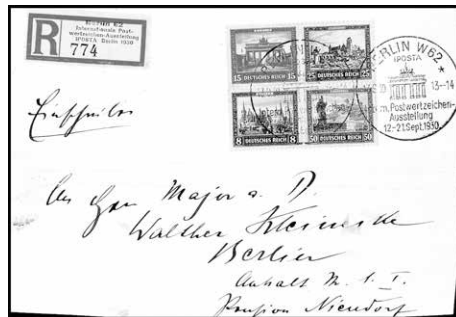 Berlin 62
Internationale Post-
wertzeichen-Ausstellung
IPOSTA Berlin 1930
R
774
15 DEUTSCHES REICH 15
25 DEUTSCHES REICH 25
8 DEUTSCHES REICH
DEUTSCHES REICH 50
BERLIN W62
IPOSTA
13-14
m. Postwertzeichen-
Ausstellung
12.-21.Sept.1930.
Einschreiben
An Herrn Major a. D.
Walther
Berlin
Anhalt
Pension Niendorf